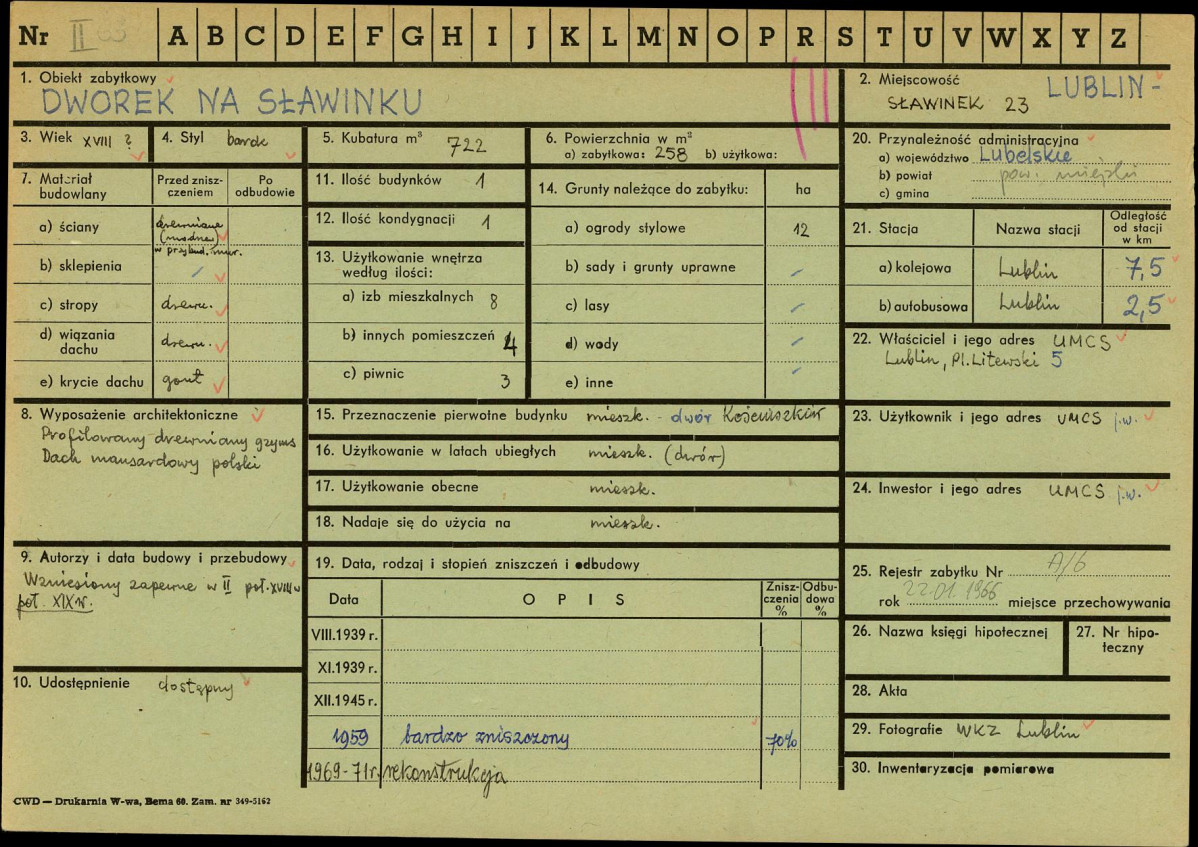 Nr II 63 A B C D E F G H I J K L M N O P R S T U V W X Y Z
1. Obiekt zabytkowy
DWOREK NA SŁAWINKU
2. Miejscowość LUBLIN -
SŁAWINEK 23
3. Wiek XVIII ?
4. Styl barok
5. Kubatura m³ 722
6. Powierzchnia w m²
a) zabytkowa: 258 b) użytkowa:
20. Przynależność administracyjna
a) województwo Lubelskie
b) powiat pow. miejski
c) gmina
7. Materiał budowlany
Przed zniszczeniem
Po odbudowie
a) ściany drewniane
(modrzew)
w przybud. mur.
b) sklepienia
c) stropy drewn.
d) wiązania dachu drewn.
e) krycie dachu gont
11. Ilość budynków 1
12. Ilość kondygnacji 1
13. Użytkowanie wnętrza
według ilości:
a) izb mieszkalnych 8
b) innych pomieszczeń 4
c) piwnic 3
14. Grunty należące do zabytku: ha
a) ogrody stylowe 12
b) sady i grunty uprawne
c) lasy
d) wody
e) inne
21. Stacja Nazwa stacji Odległość
od stacji
w km
a) kolejowa Lublin 7,5
b) autobusowa Lublin 2,5
22. Właściciel i jego adres UMCS
Lublin, Pl. Litewski 5
8. Wyposażenie architektoniczne
Profilowany drewniany gzyms
Dach mansardowy polski
15. Przeznaczenie pierwotne budynku mieszk. - dwór Kościuszków
16. Użytkowanie w latach ubiegłych mieszk. (dwór)
17. Użytkowanie obecne mieszk.
18. Nadaje się do użycia na mieszk.
23. Użytkownik i jego adres UMCS j.w.
24. Inwestor i jego adres UMCS j.w.
9. Autorzy i data budowy i przebudowy
Wzniesiony zapewne w II poł. XVIII w
poł. XIX w.
10. Udostępnienie dostępny
19. Data, rodzaj i stopień zniszczeń i odbudowy
Data OPIS Zniszczenia % Odbudowa %
VIII.1939 r.
XI.1939 r.
XII.1945 r.
1959 bardzo zniszczony 70%
1969-71r. rekonstrukcja
25. Rejestr zabytku Nr A/6
rok 22.01.1966 miejsce przechowywania
26. Nazwa księgi hipotecznej
27. Nr hipoteczny
28. Akta
29. Fotografie WKZ Lublin
30. Inwentaryzacja pomiarowa
CWD — Drukarnia W-wa, Bema 60. Zam. nr 349-5162